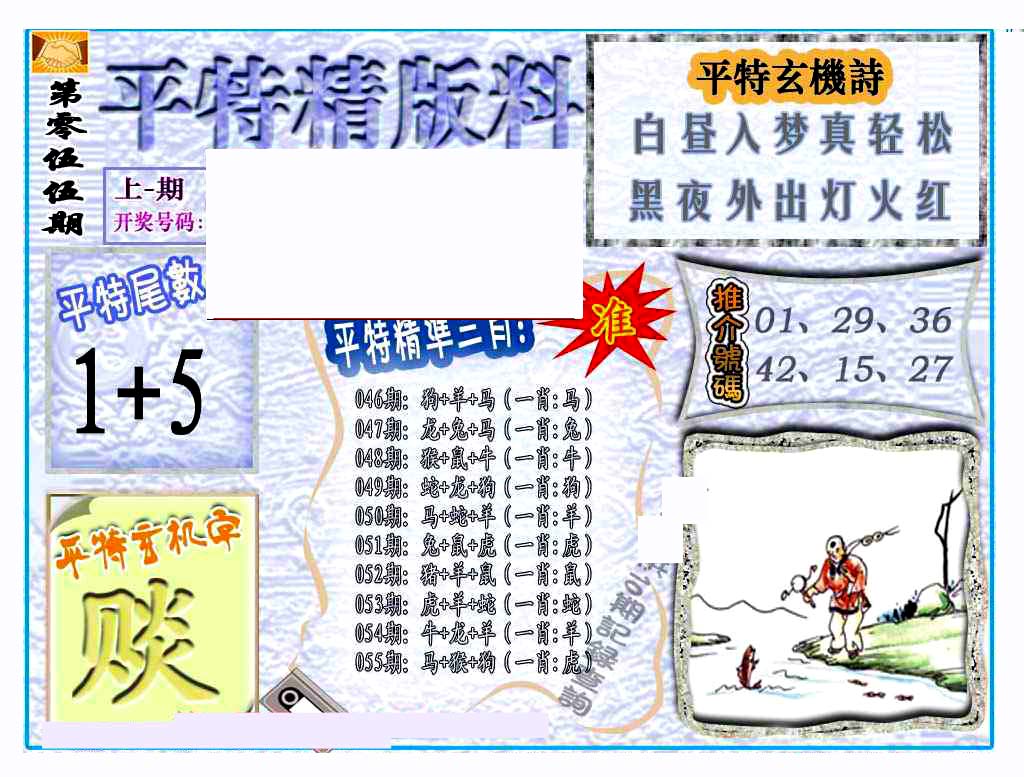 第零伍伍期
平特精版料
上-期
开奖号码:
平特玄機詩
白昼入梦真轻松
黑夜外出灯火红
平特尾數
1+5
平特精準三肖!
准
推介號碼
01、29、36
42、15、27
046期: 狗+羊+马 (一肖:马)
047期: 龙+兔+马 (一肖:兔)
048期: 猴+鼠+牛 (一肖:牛)
049期: 蛇+龙+狗 (一肖:狗)
050期: 马+蛇+羊 (一肖:羊)
051期: 兔+鼠+虎 (一肖:虎)
052期: 猪+羊+鼠 (一肖:鼠)
053期: 虎+羊+蛇 (一肖:蛇)
054期: 牛+龙+羊 (一肖:羊)
055期: 马+猴+狗 (一肖:虎)
期記録查詢
平特玄机字
赕